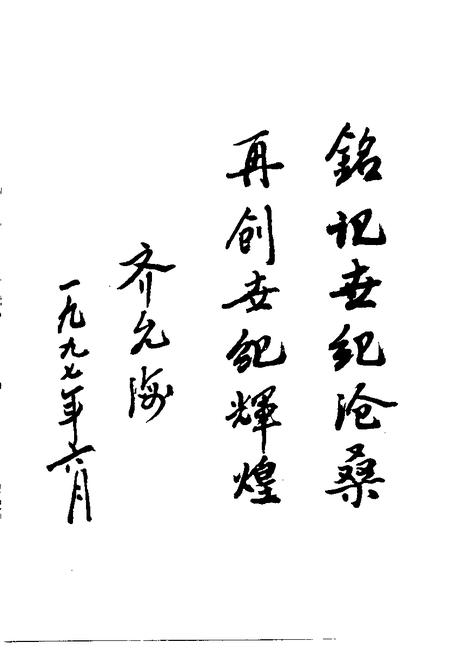 銘记世纪沧桑
再创世纪輝煌
齐允海
一九九七年六月